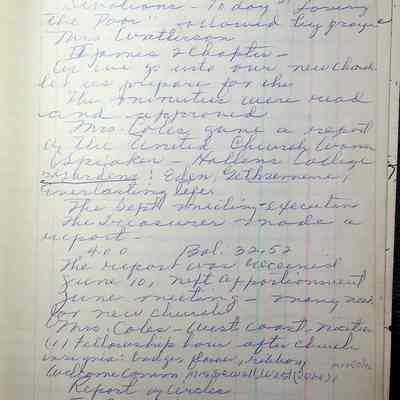 Devotions - Today "Loving
the Poor" followed by prayer
Mrs Watterson
James 2 Chapter -
As we go into our new Church
let us prepare for the
The minutes were read
and approved
Mrs. Coles gave a report
of the United Church Women
Speaker - Hollins College
Gardens: Eden, Gethsemene,
Everlasting life.
The Sept meeting - executive
The Treasurer made a
report -
4.00 Bal. 32.52
The report was received
June 10, next apportionment
June meeting - many
for new church
Mrs. Coles - West Coast
(1) Fellowship hour after church
insignia: badges, flower, ribbon,
Welcome Comm.
Report of Circles